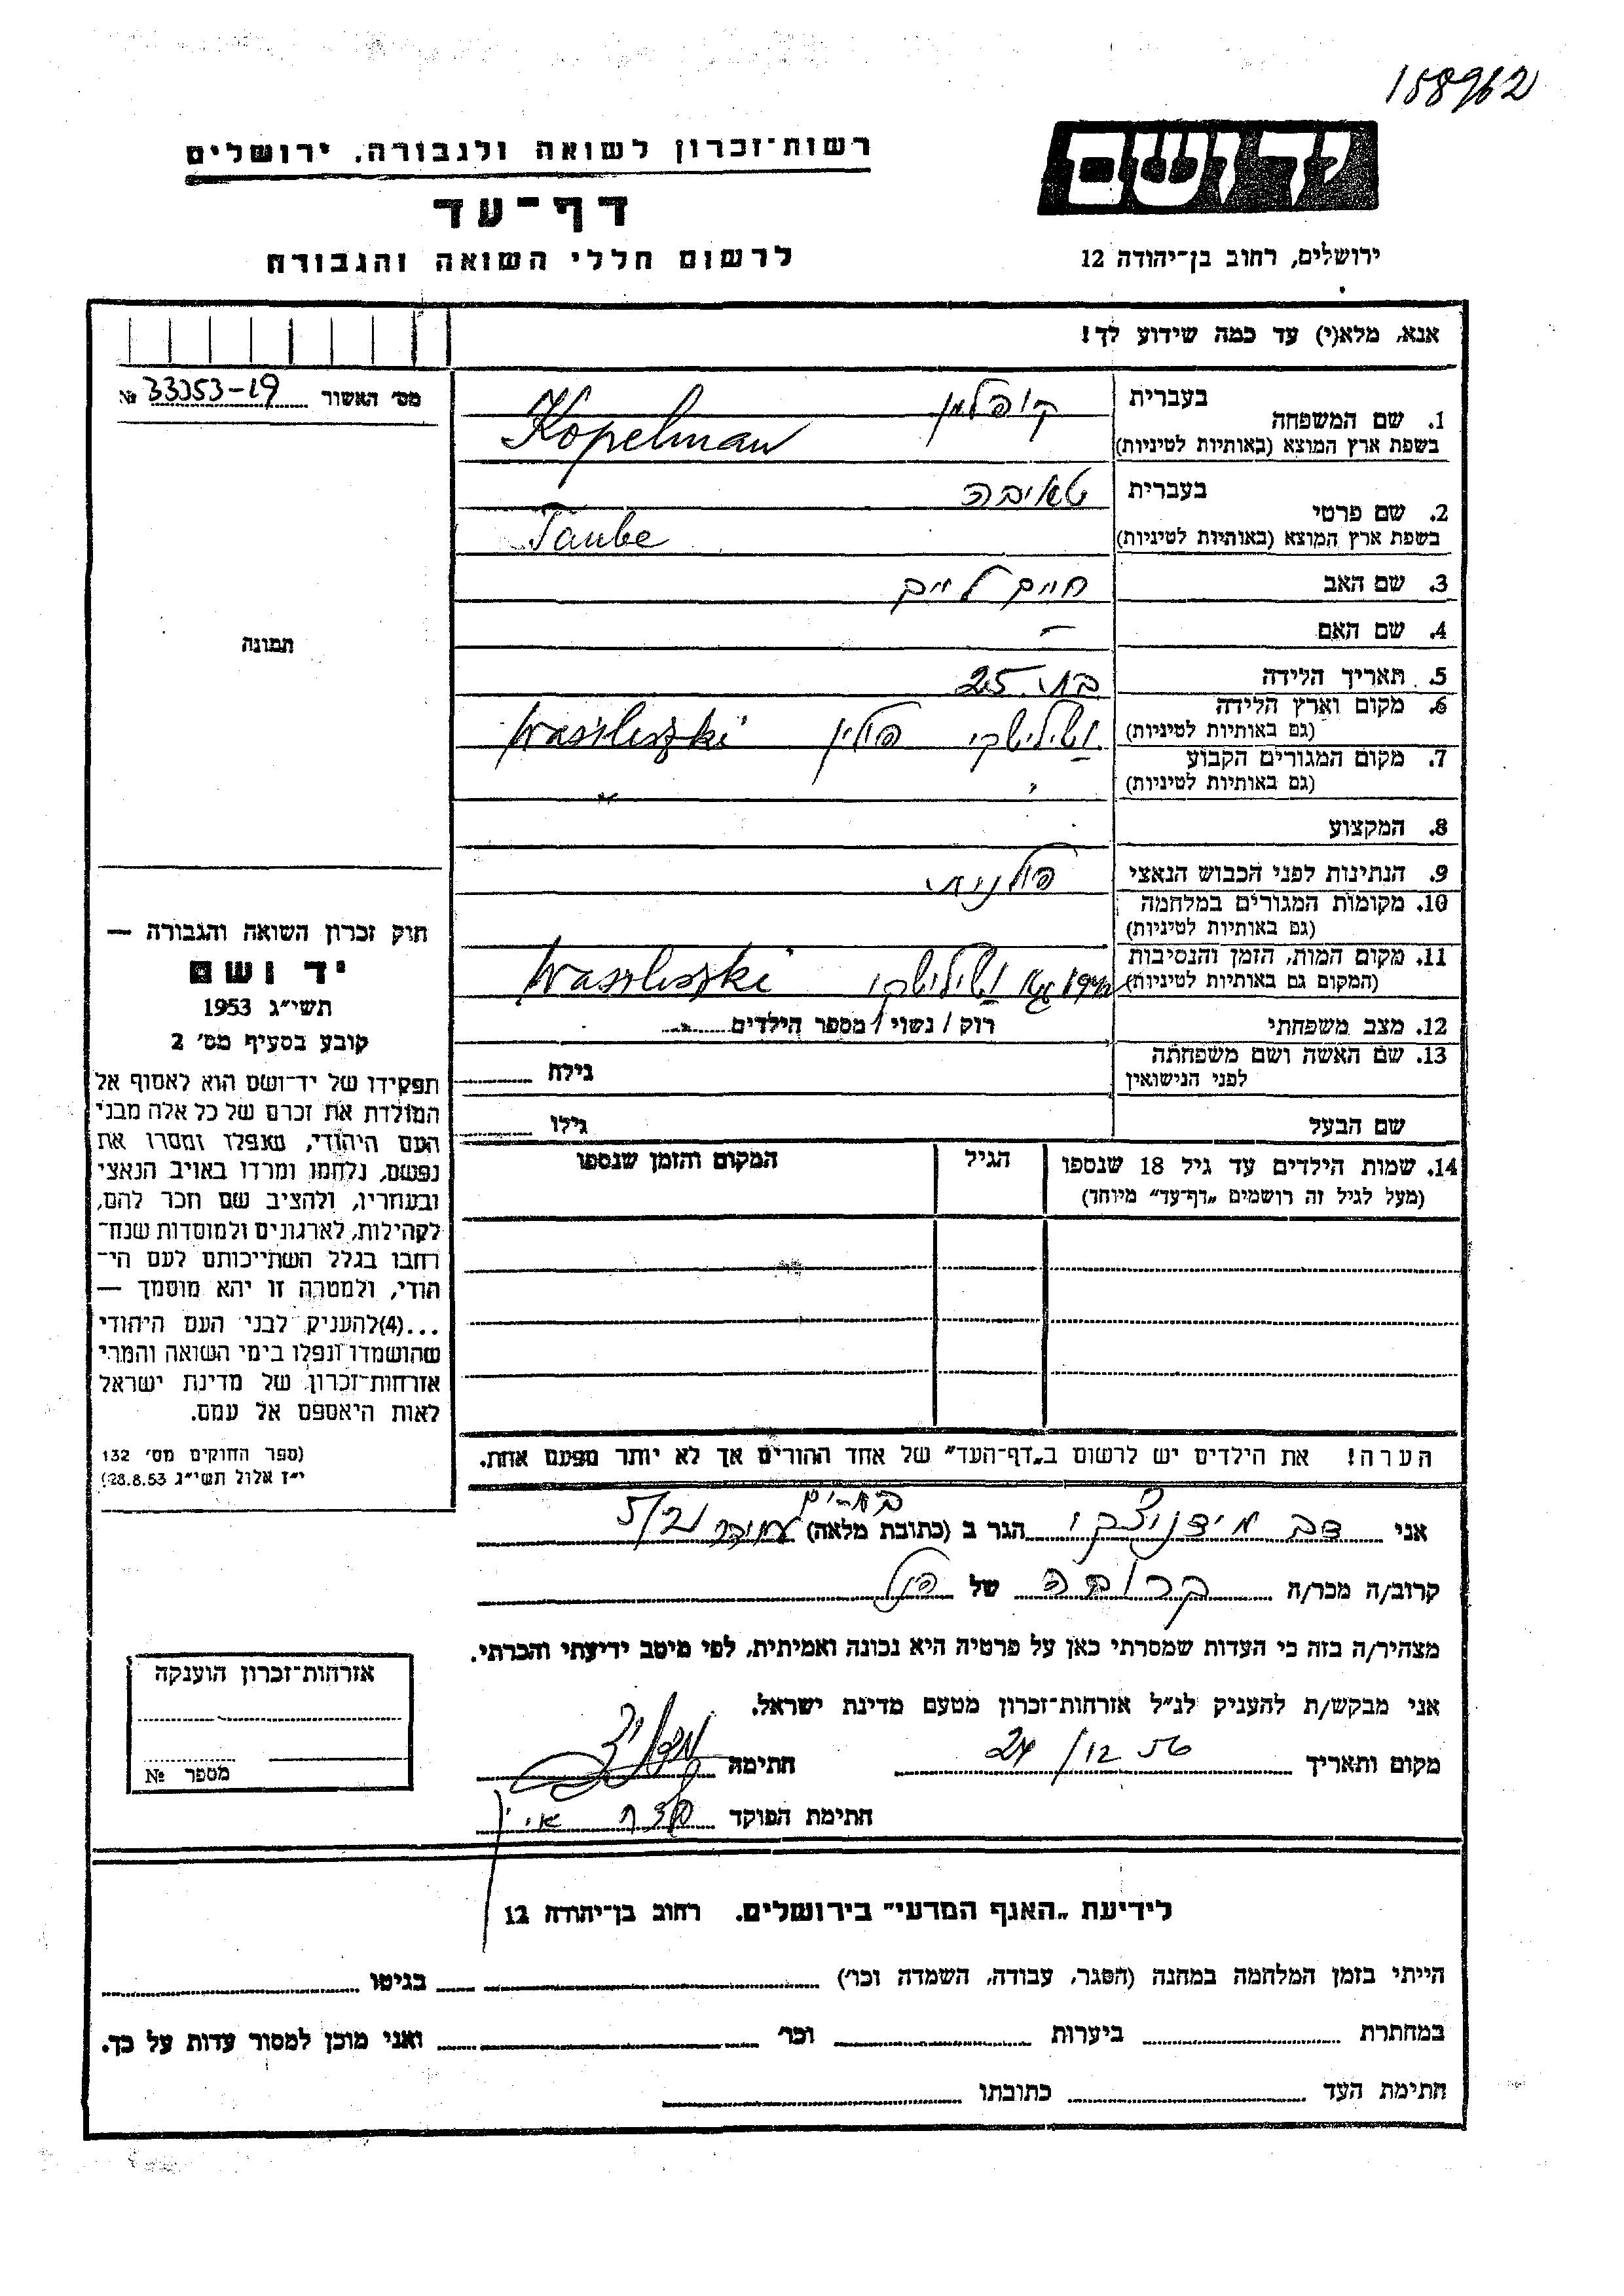 158962
יד ושם
רשות־זכרון לשואה ולגבורה, ירושלים
דף־עד
לרשום חללי השואה והגבורה
ירושלים, רחוב בן־יהודה 12
אנא, מלא(י) עד כמה שידוע לך!
מס׳ האשור 33053-19 №
1. שם המשפחה בעברית קופלמן
בשפת ארץ המוצא (באותיות לטיניות) Kopelman
2. שם פרטי בעברית טאובה
בשפת ארץ המוצא (באותיות לטיניות) Taube
3. שם האב חיים לייב
4. שם האם –
תמונה
5. תאריך הלידה בת 25
6. מקום וארץ הלידה (גם באותיות לטיניות) ושילישקי פולין Wasiliszki
7. מקום המגורים הקבוע (גם באותיות לטיניות) ״
8. המקצוע
9. הנתינות לפני הכבוש הנאצי פולנית
10. מקומות המגורים במלחמה (גם באותיות לטיניות)
11. מקום המות, הזמן והנסיבות (המקום גם באותיות לטיניות) 1942 ושילישקי Wasiliszki
12. מצב משפחתי רוק / נשוי / מספר הילדים
13. שם האשה ושם משפחתה לפני הנישואין גילה
שם הבעל גילו
14. שמות הילדים עד גיל 18 שנספו (מעל לגיל זה רושמים „דף־עד״ מיוחד) הגיל המקום והזמן שנספו
הערה! את הילדים יש לרשום ב„דף־העד״ של אחד ההורים אך לא יותר מפעם אחת.
חוק זכרון השואה והגבורה —
יד ושם
תשי״ג 1953
קובע בסעיף מס׳ 2
תפקידו של יד־ושם הוא לאסוף אל
המולדת את זכרם של כל אלה מבני
העם היהודי, שנפלו ומסרו את
נפשם, נלחמו ומרדו באויב הנאצי
ובעוזריו, ולהציב שם וזכר להם,
לקהילות, לארגונים ולמוסדות שנח־
רבו בגלל השתייכותם לעם הי־
הודי, ולמטרה זו יהא מוסמך —
...(4)להעניק לבני העם היהודי
שהושמדו ונפלו בימי השואה והמרי
אזרחות־זכרון של מדינת ישראל
לאות היאספם אל עמם.
(ספר החוקים מס׳ 132
י״ז אלול תשי״ג 28.8.53)
אני דב הגר ב (כתובת מלאה) 5/21
קרוב/ה מכר/ה קרובה של הנ״ל
מצהיר/ה בזה כי העדות שמסרתי כאן על פרטיה היא נכונה ואמיתית, לפי מיטב ידיעתי והכרתי.
אני מבקש/ת להעניק לנ״ל אזרחות־זכרון מטעם מדינת ישראל.
מקום ותאריך 24/12 56 חתימה
חתימת הפוקד
אזרחות־זכרון הוענקה
מספר №
לידיעת „האגף המדעי״ בירושלים. רחוב בן־יהודה 12
הייתי בזמן המלחמה במחנה (הסגר, עבודה, השמדה וכו׳) בגיטו
במחתרת ביערות וכו׳ ואני מוכן למסור עדות על כך.
חתימת העד כתובתו